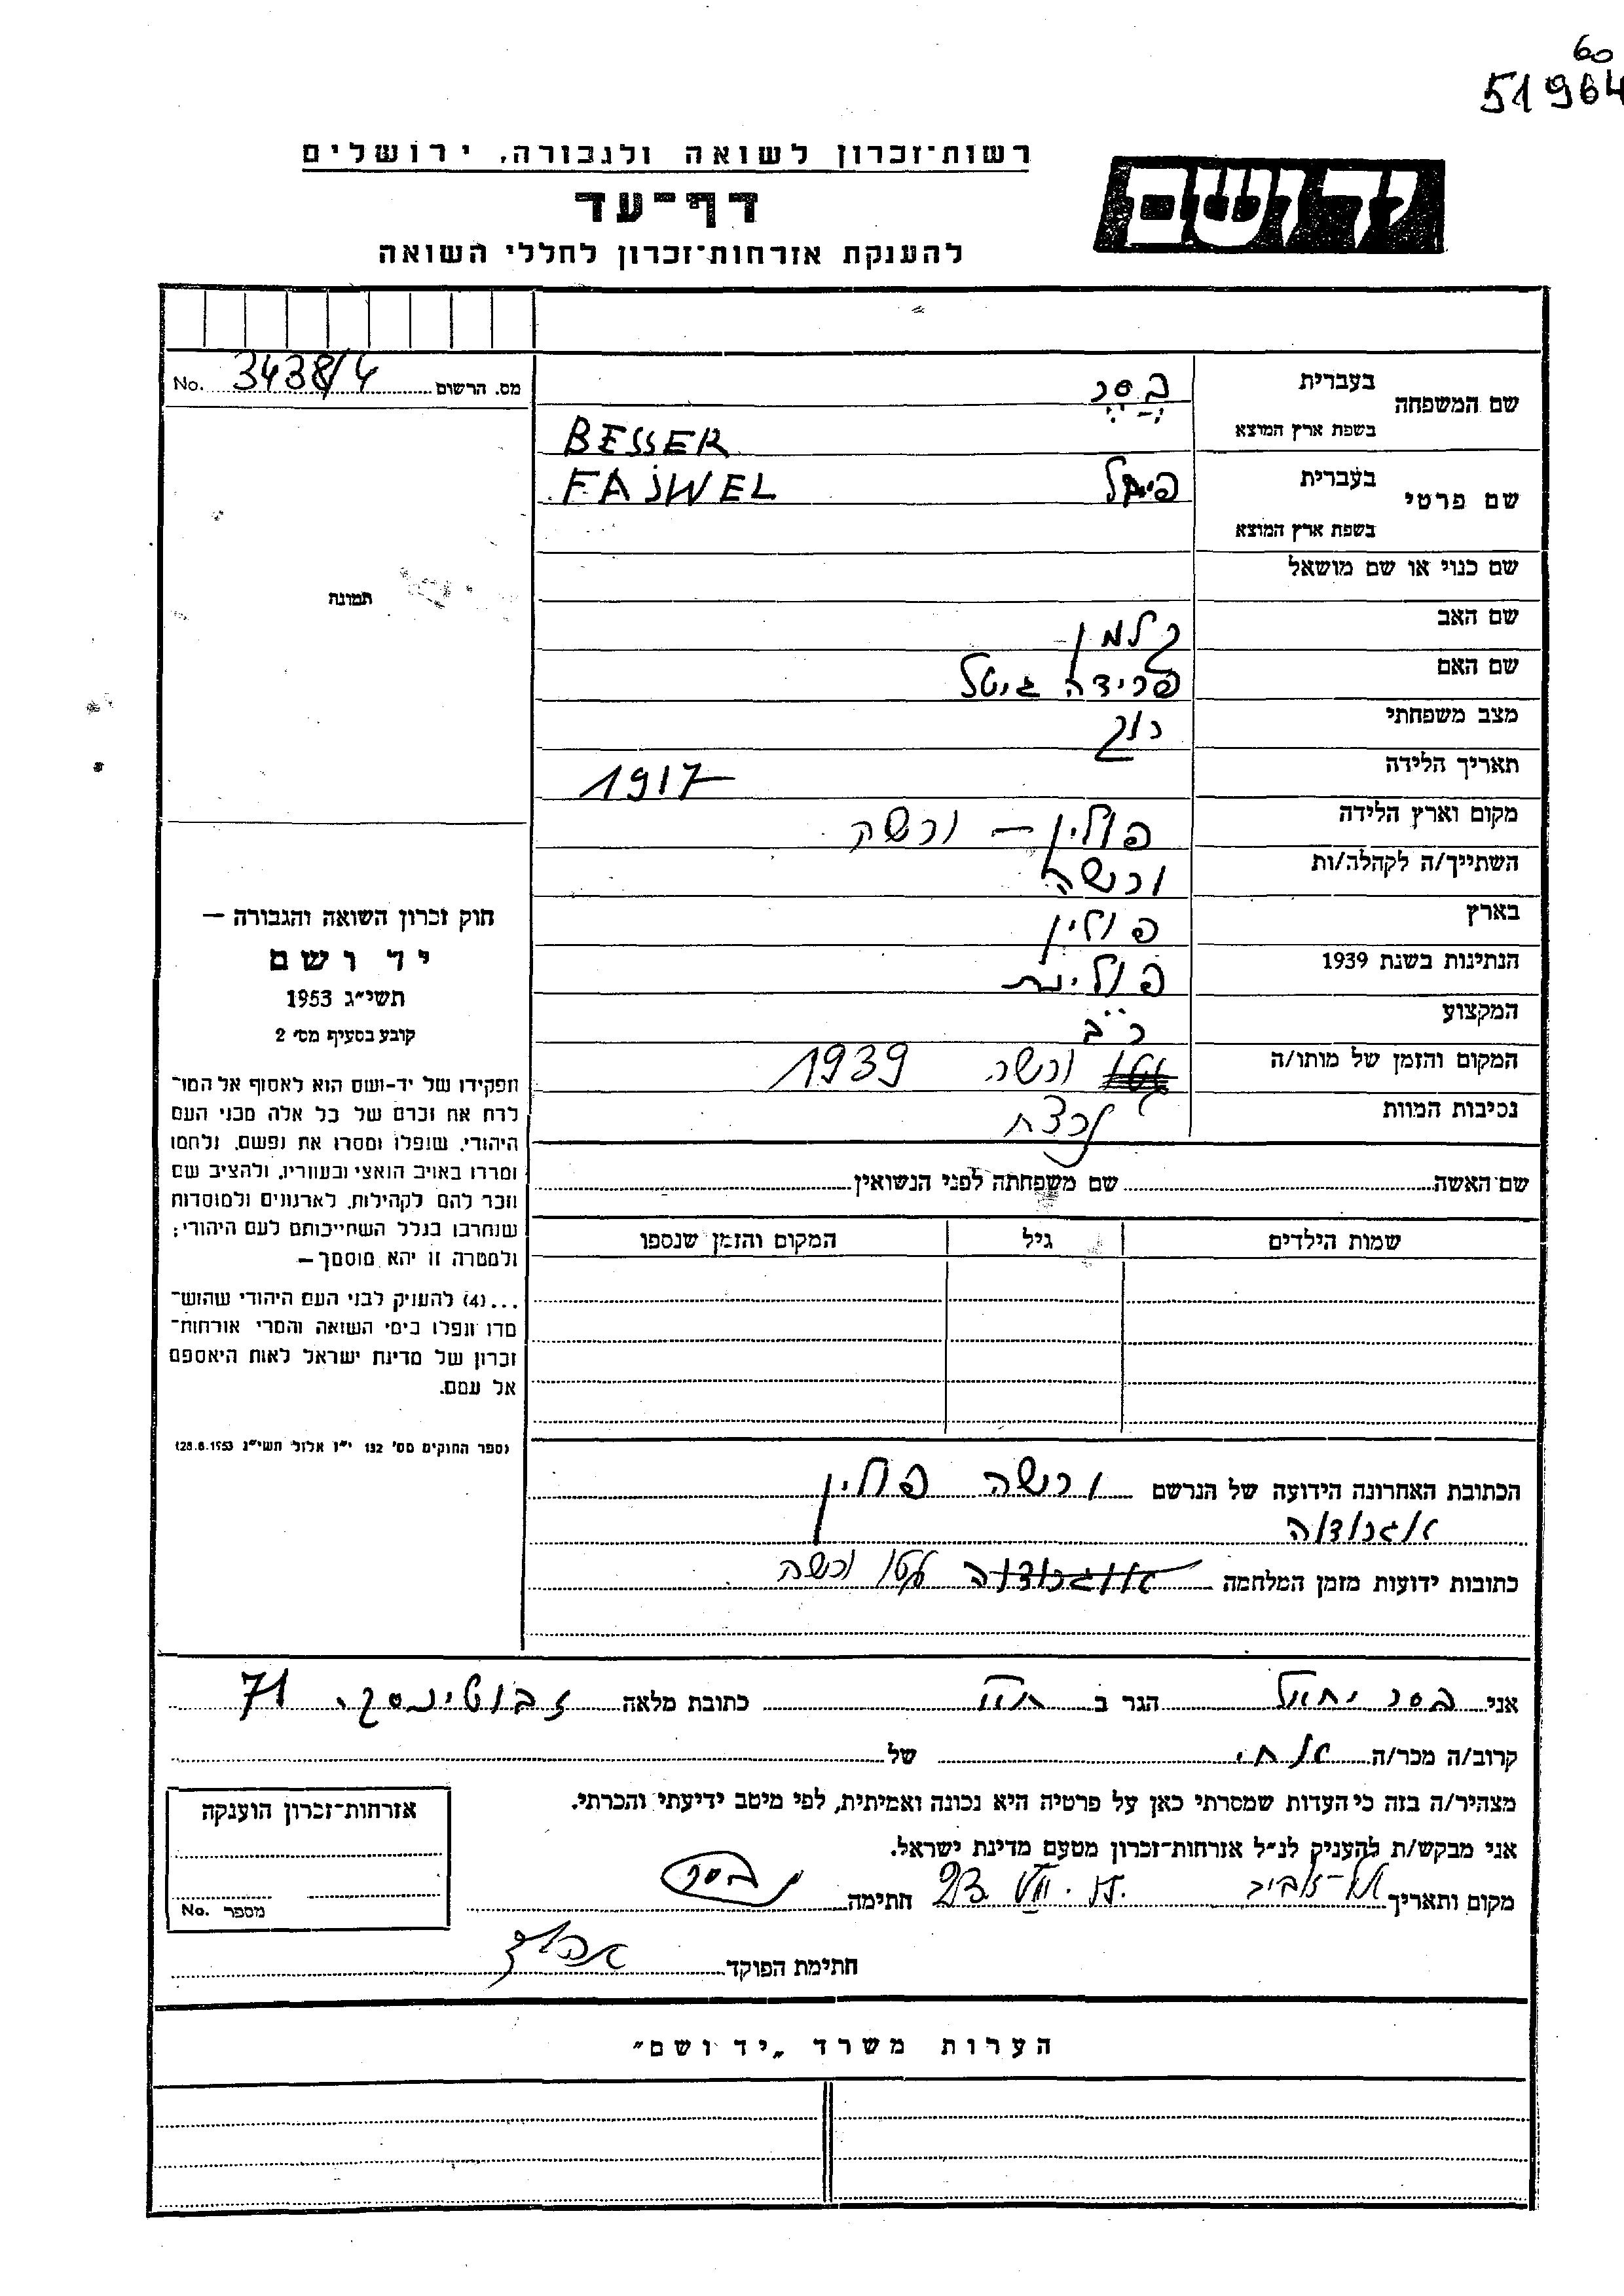 60
51964
יד ושם
רשות־זכרון לשואה ולגבורה, ירושלים
דף־עד
להענקת אזרחות־זכרון לחללי השואה
מס. הרשום 3438/4 No.
שם המשפחה בעברית בסר
בשפת ארץ המוצא BESSER
שם פרטי בעברית פיבל FAJWEL
בשפת ארץ המוצא
שם כנוי או שם מושאל
שם האב קלמן
שם האם פרידה גיטל
מצב משפחתי רוק
תאריך הלידה 1917
מקום וארץ הלידה פולין – ורשה
השתייך/ה לקהלה/ות ורשה
בארץ פולין
הנתינות בשנת 1939 פולינת
המקצוע רב
המקום והזמן של מותו/ה ורשה 1939
נסיבות המוות נרצח
תמונה
חוק זכרון השואה והגבורה —
יד ושם
תשי״ג 1953
קובע בסעיף מס׳ 2
תפקידו של יד-ושם הוא לאסוף אל המו־
לדת את זכרם של כל אלה מבני העם
היהודי, שנפלו ומסרו את נפשם, נלחמו
ומרדו באויב הנאצי ובעוזריו, ולהציב שם
וזכר להם לקהילות, לארגונים ולמוסדות
שנחרבו בגלל השתייכותם לעם היהודי;
ולמטרה זו יהא מוסמך—
...(4) להעניק לבני העם היהודי שהוש־
מדו ונפלו בימי השואה והמרי אזרחות־
זכרון של מדינת ישראל לאות היאספם
אל עמם.
(ספר החוקים מס׳ 132 י״ז אלול תשי״ג 28.8.1953)
שם האשה שם משפחתה לפני הנשואין
שמות הילדים גיל המקום והזמן שנספו
הכתובת האחרונה הידועה של הנרשם ורשה פולין
אגרודוה
כתובות ידועות מזמן המלחמה אוגרודוה גטו ורשה
אני בסר יחיאל הגר ב ת״א כתובת מלאה זבוטינסקי 71
קרוב/ה מכר/ה אחי של
מצהיר/ה בזה כי העדות שמסרתי כאן על פרטיה היא נכונה ואמיתית, לפי מיטב ידיעתי והכרתי.
אני מבקש/ת להעניק לנ״ל אזרחות־זכרון מטעם מדינת ישראל.
מקום ותאריך תל-אביב חתימה י בסר
חתימת הפוקד
אזרחות־זכרון הוענקה
מספר No.
הערות משרד „יד ושם״